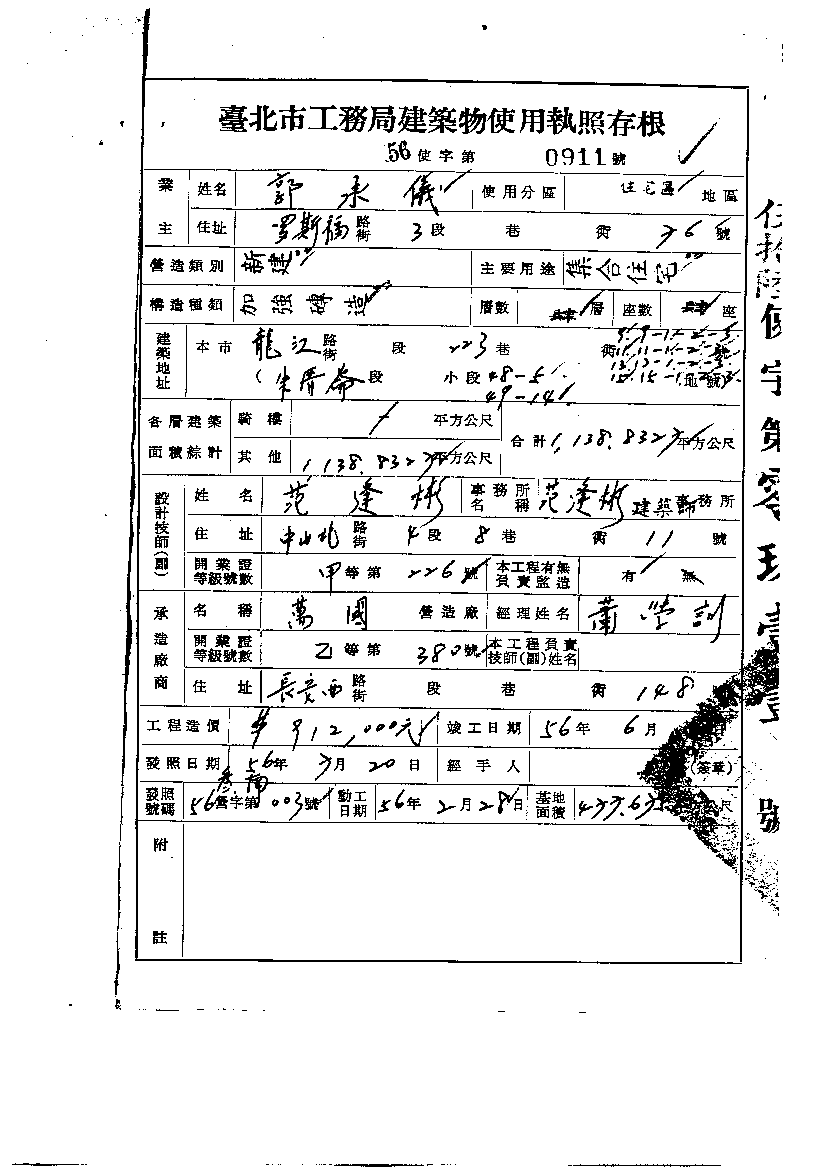 臺北市工務局建築物使用執照存根
56使字第 0911號
業主 姓名 郭承儀 使用分區 住宅區 地區
住址 羅斯福 路街 3段 巷 衖 號
營造類別 新建 主要用途 集合住宅
構造種類 加強磚造 層數 肆層 座數 肆座
建築地址 本市 龍江 路街 段 223巷 衖
(朱厝崙段 小段 48-5 地號
49-14
各層建築面積綜計 騎樓 平方公尺 合計 1,138.832 平方公尺
其他 1,138.832 平方公尺
設計技師(副) 姓名 范逢彬 事務所名稱 范逢彬建築師事務所
住址 中山北 路街 4段 8巷 衖 11號
開業證等級號數 甲等第 226號 本工程有無負責監造 有 無
承造廠商 名稱 萬國 營造廠 經理姓名 蕭 訓
開業證等級號數 乙等第 380號 本工程負責技師(副)姓名
住址 長安西 路街 段 巷 衖 148
工程造價 912,000元 竣工日期 56年 6月
發照日期 56年 月 20日 經手人 (簽章)
發照號碼 56營字第 003號 動工日期 56年 2月 28日 基地面積 公尺
附註
伍拾陸使字第零玖壹壹號